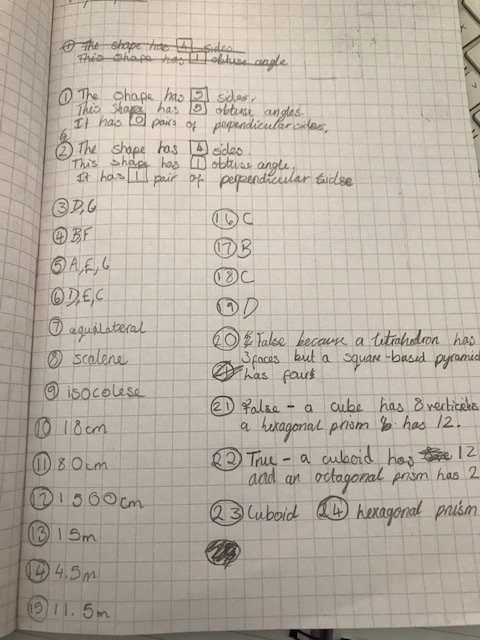 The shape has 4 sides
This shape has 1 obtuse angle
① The shape has 5 sides.
This shape has 5 obtuse angles.
It has 0 pairs of perpendicular sides.
② The shape has 4 sides.
This shape has 1 obtuse angle.
It has 1 pair of perpendicular sides
③ D, G
④ B, F
⑤ A, E, G
⑥ D, E, C
⑦ aquilateral
⑧ scalene
⑨ isocolese
⑩ 18cm
⑪ 80cm
⑫ 1500cm
⑬ 15m
⑭ 4.5m
⑮ 11.5m
⑯ C
⑰ B
⑱ C
⑲ D
⑳ False because a tetrahedron has
3 faces but a square-based pyramid
has four
㉑ False - a cube has 8 verticies
a hexagonal prism has 12.
㉒ True - a cuboid has 12
and an octagonal prism has 2
㉓ Cuboid ㉔ hexagonal prism